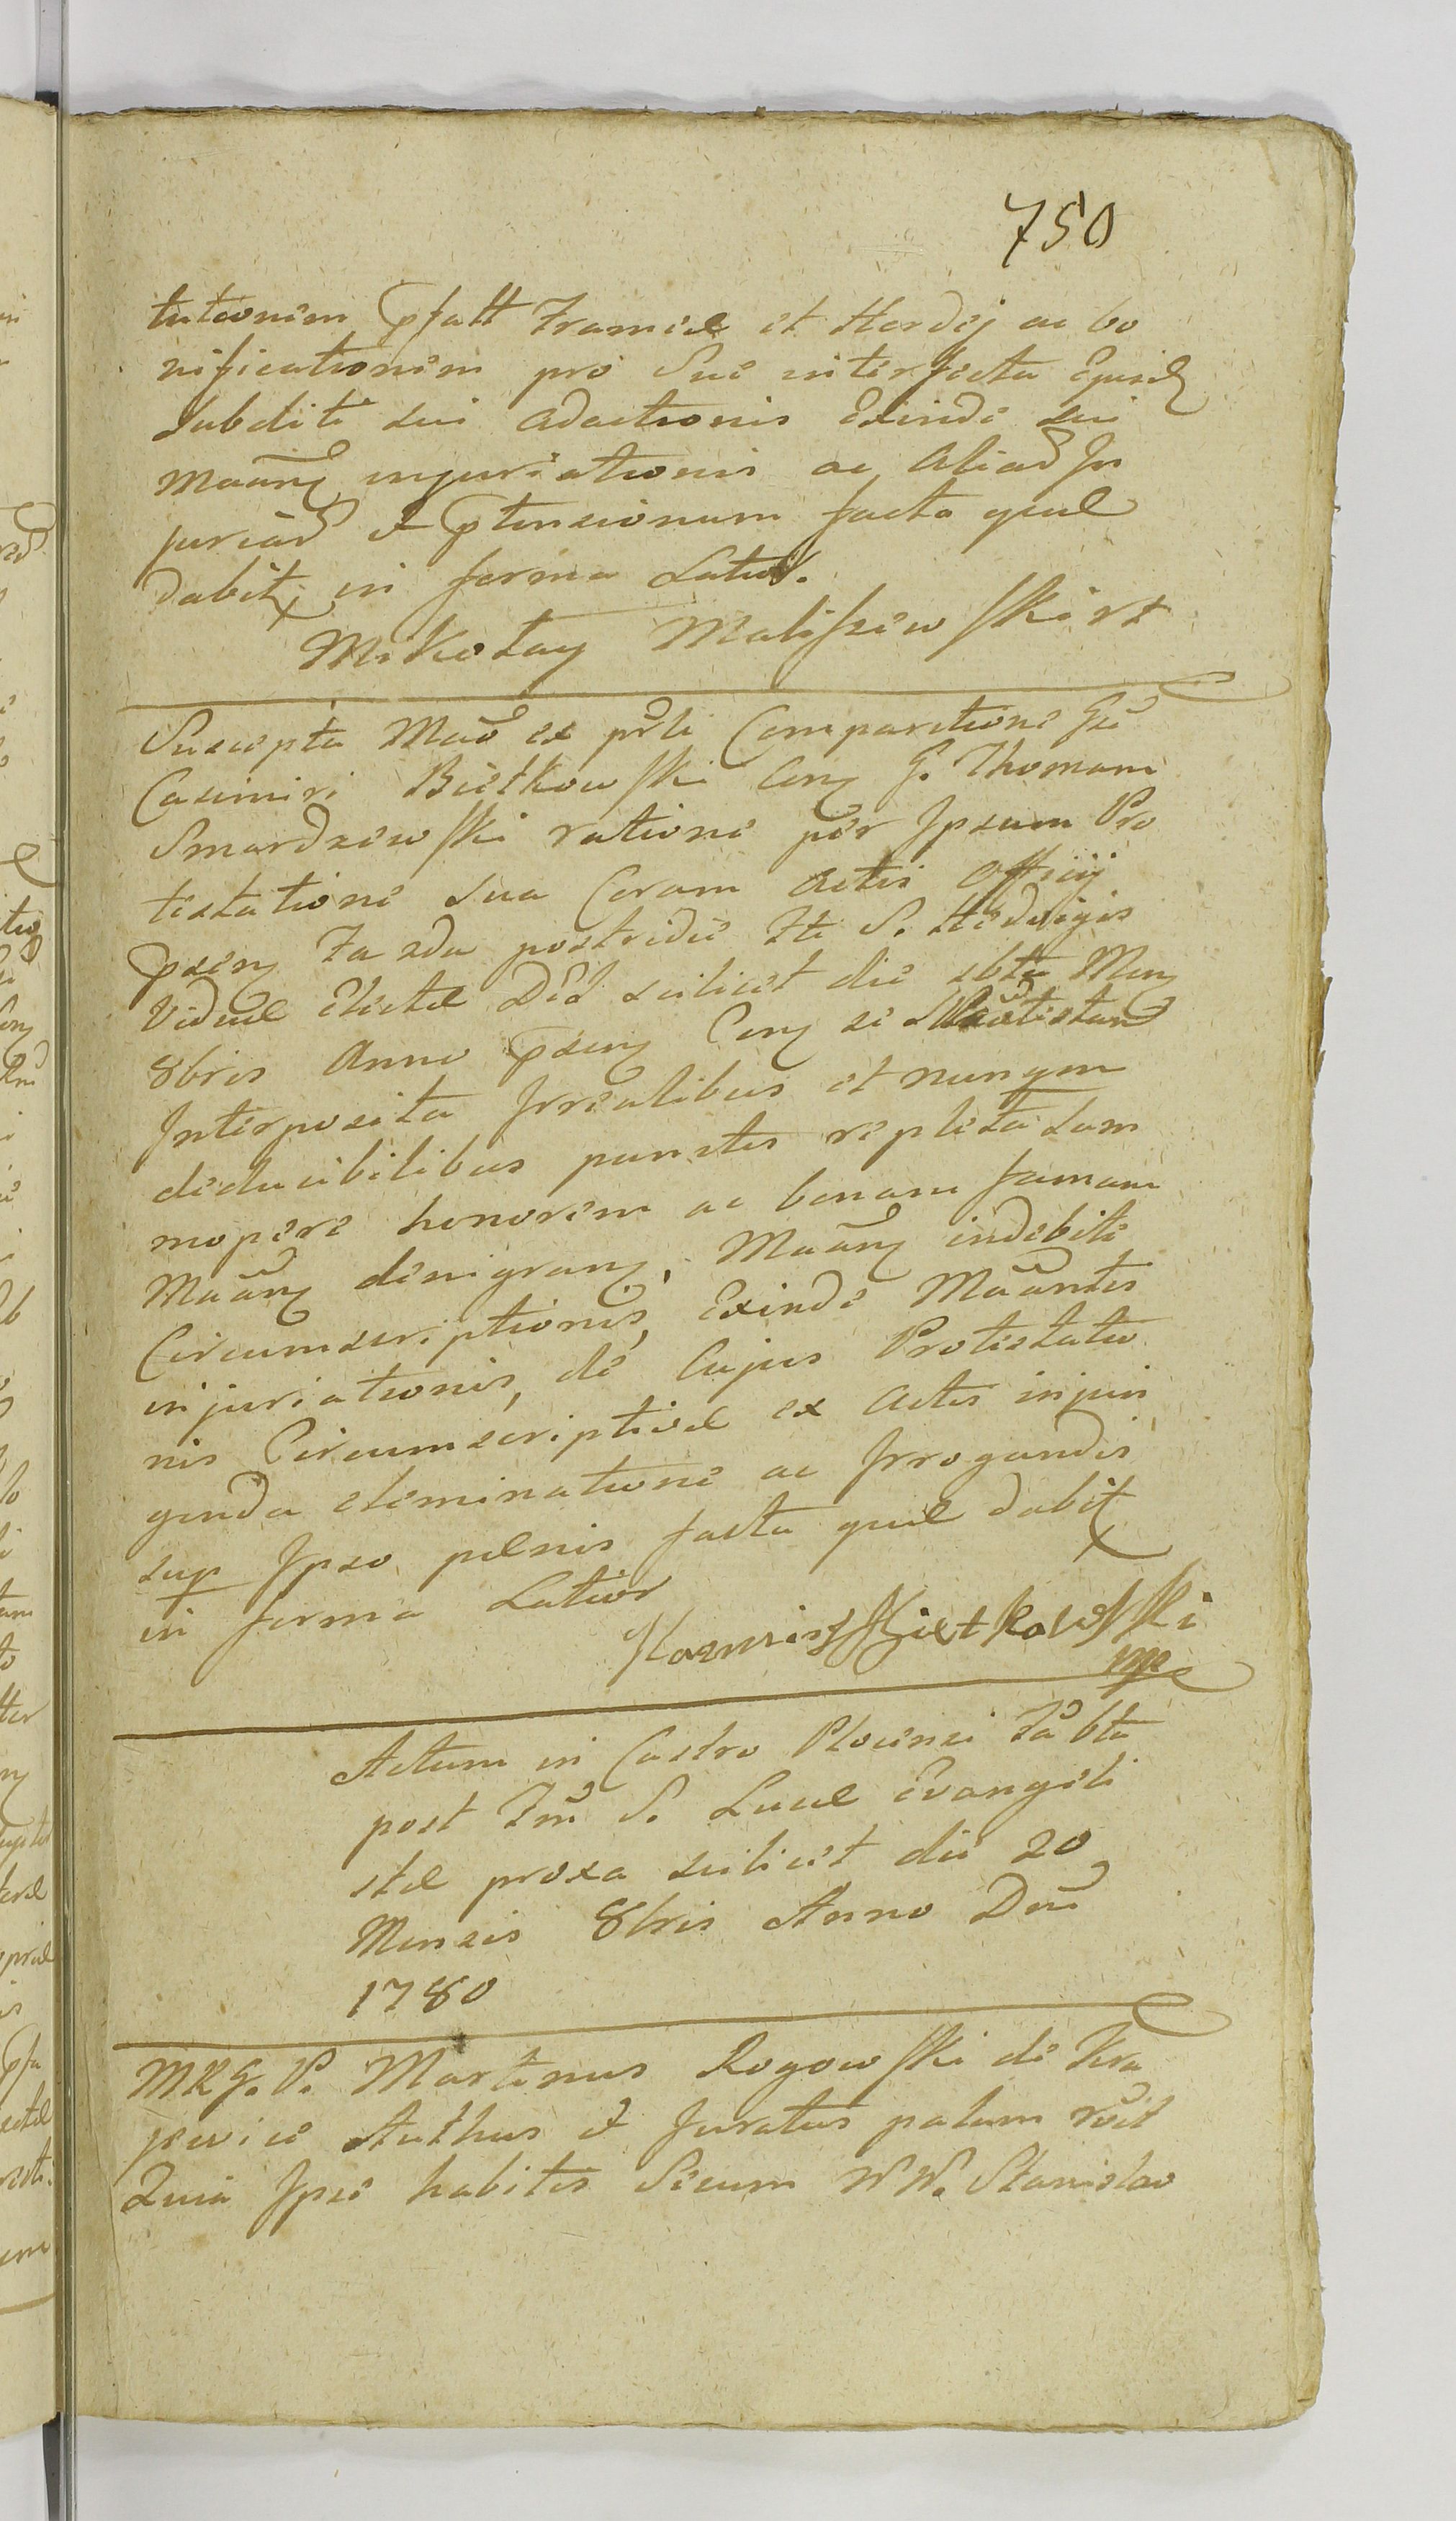 750
tutionem pfatt Frameæ et Hordej ac bo
nificationem pro Sue interfecta Ejusd
Subditi sui adactionis Exinde sui
Maãng injuriationis ac Aliad In
juriad et ptensionum facta quæ
dabit in forma Latior.
Mikołay Maliszewski rt
Suscepta Mao ex prli Comparitione Gsi
Casimiri Biełkowski Cong G. Thomam
Smardzewski ratione per Ipsum Pro
testatione sua Coram Actis Officij
pseng Fa 2da postridie Fti S. Hedwigis
Viduæ Electæ Die scilicet die Mens
8bris Anno pseng Cong se
Interposita Irrealibus et nunqm
deducibilibus punctis repleta Sum
mopere honorem ac bonam famam
Maãng denigrang, Maãng indebite
Circumscriptionis, Exinde Maãntis
injuriationis, de Cujus Protestatio
nis Circumscriptivæ ex Actis injun
genda eleminatione ac Irrogandis
sup Ipso pænis facta quæ dabit
in forma Latior
Kazmirz Biełkowski
mp
Actum in Castro Plocensi Fa 6ta
post Fm S. Lucæ Evangeli
stæ proxa scilicet die 20
Mensis 8bris Anno Dni
1780
MRG. P. Martinus Rogowski de Kra
jewice Authus et Juratus palam rcit
Quia Ipse habitis Secum NN. Stanislao